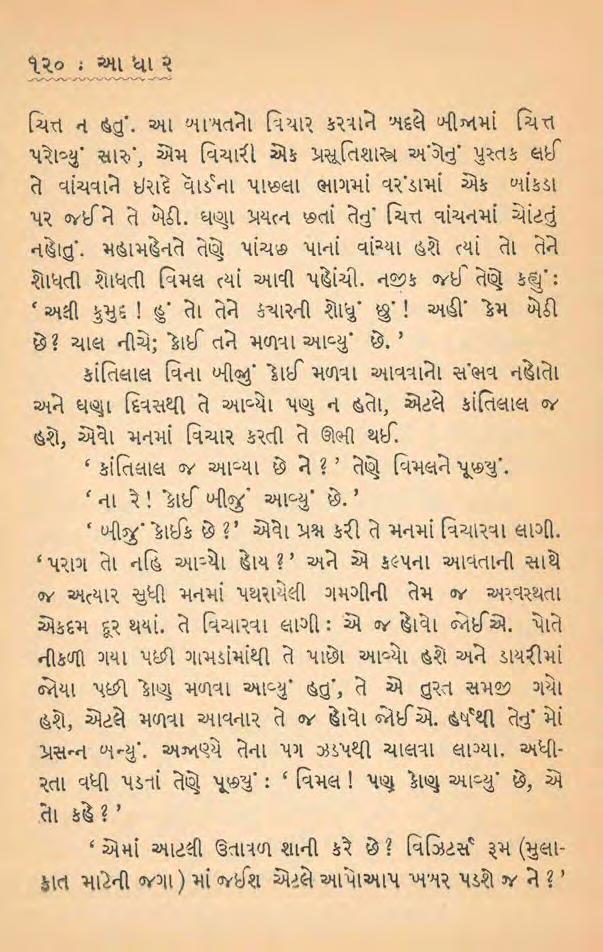 ૧૨૦ : આ ધા ર
ચિત્ત ન હતું. આ બાબતનો વિચાર કરવાને બદલે બીજામાં ચિત્ત
પરોવ્યું સારું, એમ વિચારી એક પ્રસૂતિશાસ્ત્ર અંગેનું પુસ્તક લઈ
તે વાંચવાને ઇરાદે વોર્ડના પાછલા ભાગમાં વરંડામાં એક બાંકડા
પર જઈને તે બેઠી. ઘણા પ્રયત્ન છતાં તેનું ચિત્ત વાંચનમાં ચોંટતું
નહોતું. મહામહેનતે તેણે પાંચછ પાનાં વાંચ્યા હશે ત્યાં તો તેને
શોધતી શોધતી વિમલ ત્યાં આવી પહોંચી. નજીક જઈ તેણે કહ્યું :
‘ અલી કુમુદ ! હું તો તેને કયારની શોધું છું ! અહીં કેમ બેઠી
છે? ચાલ નીચે; કોઈ તને મળવા આવ્યું છે. ’
કાંતિલાલ વિના બીજું કોઈ મળવા આવવાનો સંભવ નહોતો
અને ઘણા દિવસથી તે આવ્યો પણ ન હતો, એટલે કાંતિલાલ જ
હશે, એવો મનમાં વિચાર કરતી તે ઊભી થઈ.
‘ કાંતિલાલ જ આવ્યા છે ને ? ’ તેણે વિમલને પૂછ્યું.
‘ ના રે ! કોઈ બીજું આવ્યું છે. ’
‘ બીજું કોઈક છે ?’ એવો પ્રશ્ન કરી તે મનમાં વિચારવા લાગી.
‘ પરાગ તો નહિ આવ્યો હોય ? ’ અને એ કલ્પના આવતાની સાથે
જ અત્યાર સુધી મનમાં પથરાયેલી ગમગીની તેમ જ અસ્વસ્થતા
એકદમ દૂર થયાં. તે વિચારવા લાગી : એ જ હોવો જોઈએ. પોતે
નીકળી ગયા પછી ગામડાંમાંથી તે પાછો આવ્યો હશે અને ડાયરીમાં
જોયા પછી કોણ મળવા આવ્યું હતું, તે એ તુરત સમજી ગયો
હશે, એટલે મળવા આવનાર તે જ હોવો જોઈએ. હર્ષથી તેનું મોં
પ્રસન્ન બન્યું. અજાણ્યે તેના પગ ઝડપથી ચાલવા લાગ્યા. અધી-
રતા વધી પડતાં તેણે પૂછ્યું : ‘ વિમલ ! પણ કોણ આવ્યું છે, એ
તો કહે ? ’
‘ એમાં આટલી ઉતાવળ શાની કરે છે ? વિઝિટર્સ રૂમ (મુલા-
કાત માટેની જગા ) માં જઈશ એટલે આપોઆપ ખબર પડશે જ ને ? ’